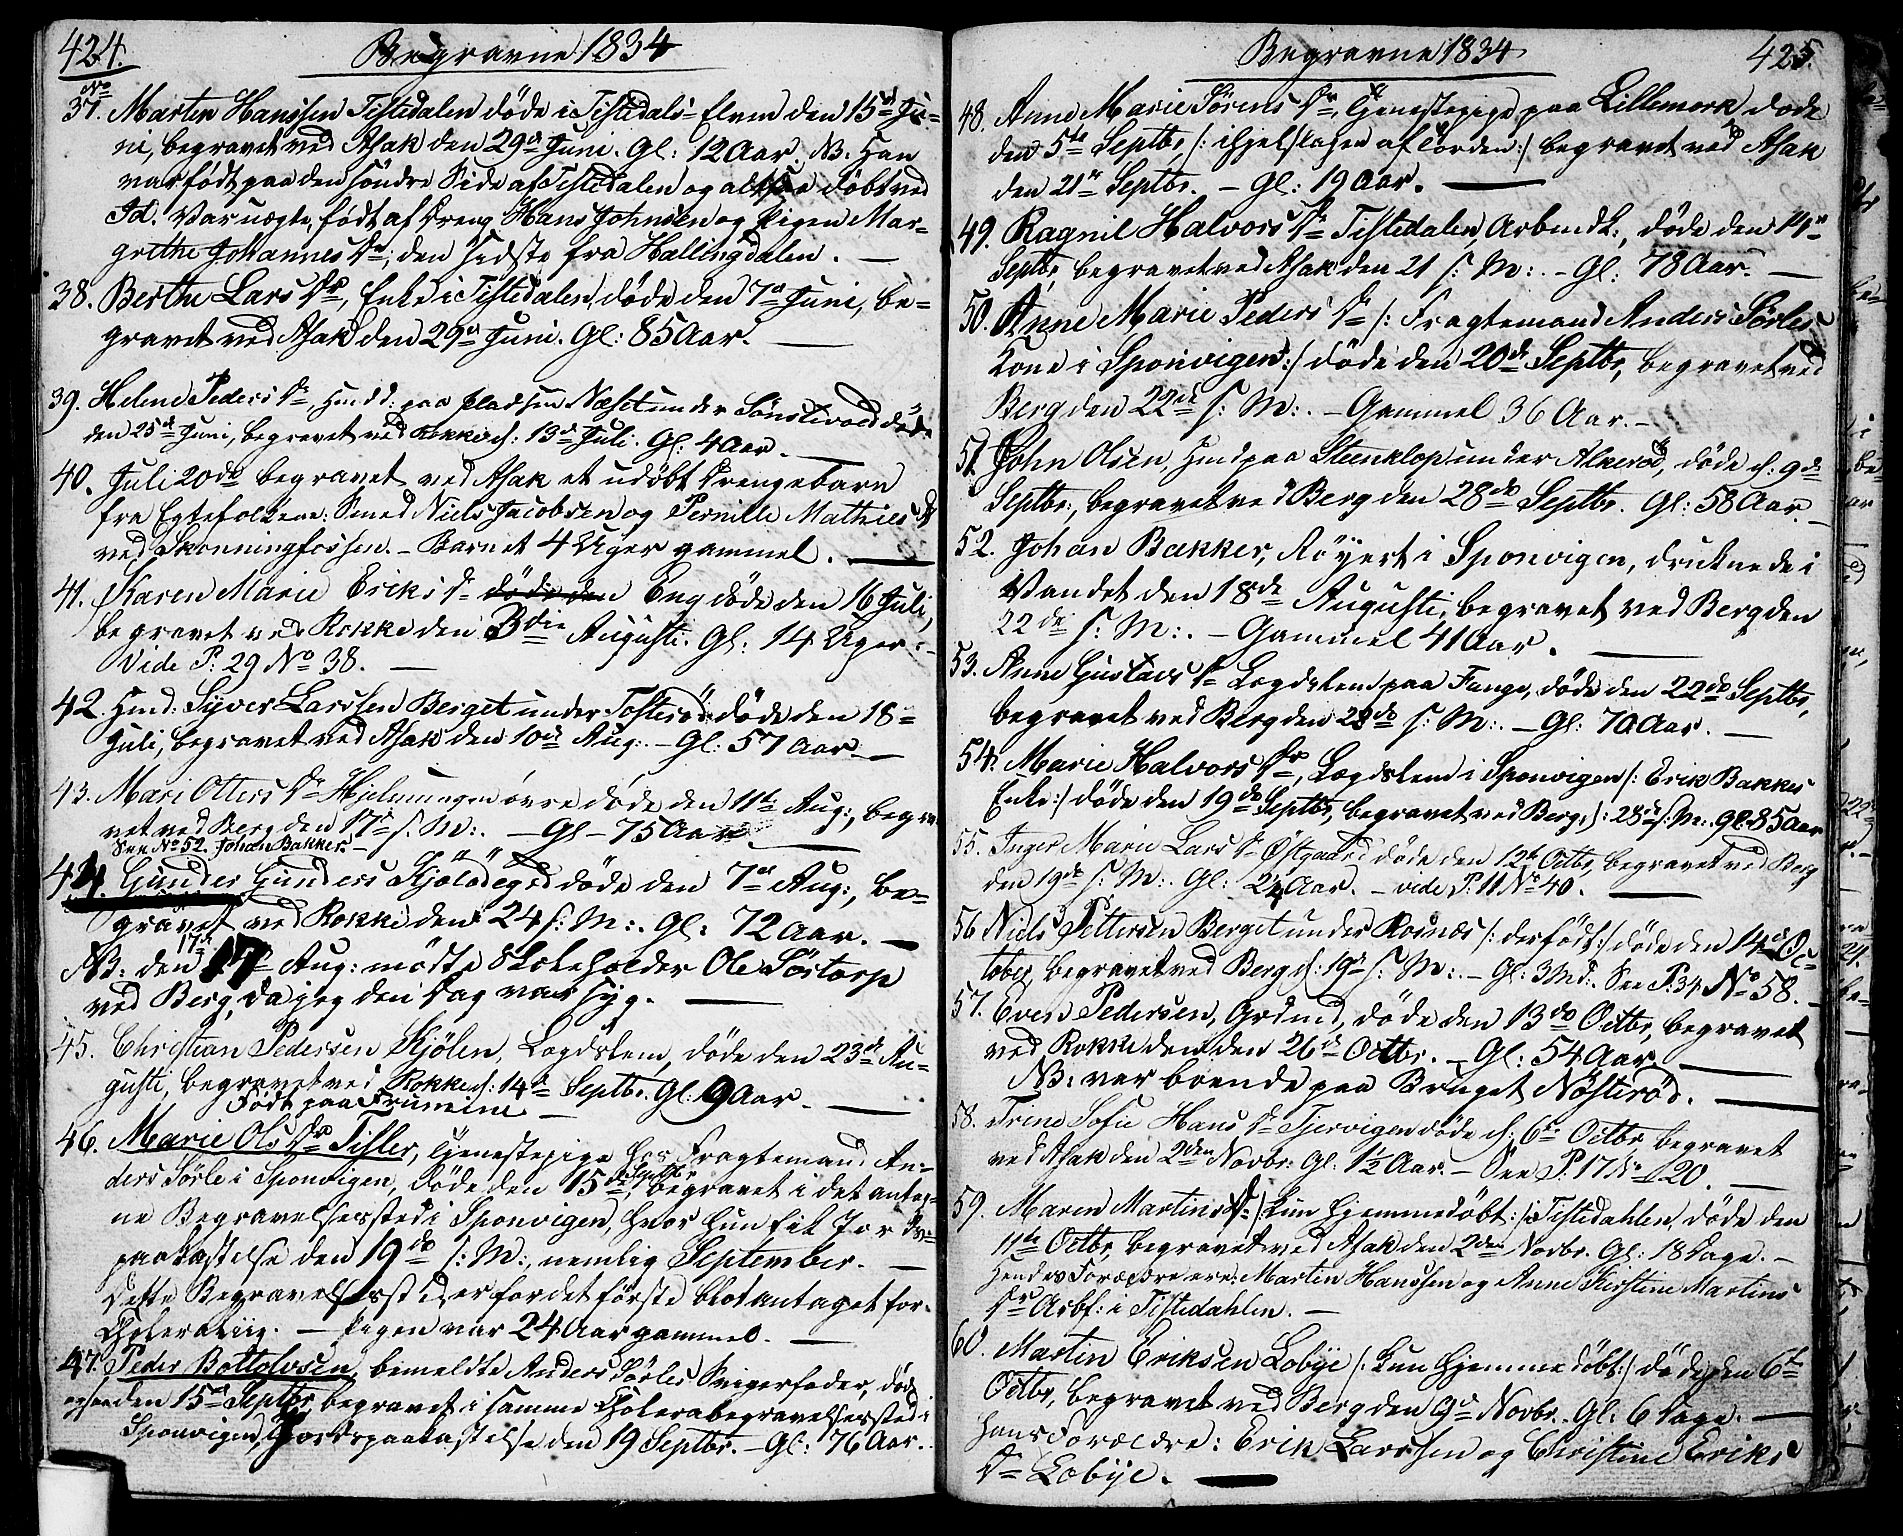 424.
Begravne 1834
No
37. Marten Hanssen Tistedalen döde i Tistedals-Elven den 15de Ju-
ni, begravet ved Asak den 29de Juni. Gl: 12 Aar. NB. Han
var födt paa den söndre Side af Tistedalen og altsaa döbt ved
Id. Var uægte, födt af Dreng Hans Johnsen og Pigen Mar-
grethe Johannes Dr, den sidste fra Hallingdalen. —
38. Berthe Lars Dr, Enke i Tistedalen, döde den 7de Juni, be-
gravet ved Asak den 29de Juni. Gl: 85 Aar. —
39. Helene Peders Dr, Huusd: paa Pladsen Næset under Sönstevold döde
den 25de Juni, begravet ved Rokke d: 13de Juli. Gl: 4 Aar. —
40. Juli 20de begravet ved Asak et udöbt Drengebarn
fra Egtefolkene: Smed Niels Jacobsen og Pernille Mathies Dr
ved Skonningfossen. - Barnet 4 Uger gammel. —
41. Karen Marie Eriks Dr döde den Eng döde den 16 Juli,
begravet ved Rokke den 3die Augusti. Gl: 14 Uger. -
Vide P: 29 No 38. —
42. Huusd: Syver Larssen Berget under Tosteröd döde den 18 -
Juli, begravet ved Asak den 10de Aug: - Gl: 57 Aar. —
43. Mari Otters Dr Hjelmungen övre döde den 11te Aug:, begra-
vet ved Berg den 17de s: M:. - Gl - 75 Aar. —
See No 52. Johan Bakker. -
44. Gunder Gunders Kjölödegrd döde den 7de Aug:, be-
gravet ved Rokke den 24 s: M:. Gl: 72 Aar. —
17de
NB: den 17de Aug: mödte Skoleholder Ole Söstorp
ved Berg, da jeg den Dag var syg. —
45. Christian Pedersen Kjölen, Lægdslem, döde den 23de Au-
gusti, begravet ved Rokke d: 14de Septbr. Gl: 9 Aar. —
Födt paa Grimine —
46. Marie Ols Dr Tisler, Tjenestepige hos Fragtemand An-
ders Sörle i Sponvigen, döde den 15de Septbr, begravet i det antag-
ne Begravelsessted i Sponvigen, hvor hun fik Jords-
paakastelse den 19de s: M:, nemlig September. —
Dette Begravelsessted er for det förste blot antaget for
Choleraliig. — Pigen var 24 Aar gammel. —
47. Peder Bottolvsen, bemeldte Anders Sörles Svigerfader, döde
ogsaa den 15de Septbr, begravet i samme Cholerabegravelsessted i
Sponvigen, Jordspaakastelse den 19 Septbr. - Gl: 76 Aar.
Begravne 1834
425.
48. Anne Marie Sörens Dr, Tjenestepige paa Lillemork döde
den 5te Septbr, /: ihjelslagen af Torden :/ begravet ved Asak
den 21de Septbr. - Gl: 19 Aar. —
49. Ragnil Halvors Dr Tistedalen, Arbmdk:, döde den 14de
Septbr, begravet ved Asak den 21 s: M:. - Gl: 78 Aar. —
50. Anne Marie Peders Dr /: Fragtemand Anders Sörles
Kone i Sponvigen :/ döde den 20de Septbr, begravet ved
Berg den 22de s: M:. - Gammel 36 Aar. -
51. John Olsen, Huusd paa Steenklop under Alkeröd, döde d. 9de
Septbr:, begravet ved Berg den 28de Septbr. Gl: 58 Aar. -
52. Johan Bakker, Röyert i Sponvigen, druknede i
Vandet den 18de Augusti, begravet ved Berg den
22de s: M:. - Gammel 41 Aar. —
53. Anne Gustavs Dr Lægdslem paa Fange, döde den 22de Septbr,
begravet ved Berg den 28de s: M:. - Gl: 70 Aar. —
54. Marie Halvors Dr, Lægdslem i Sponvigen /: Erik Bakkes
Enke :/ döde den 19de Septbr, begravet ved Berg d: 28de s: M:. Gl: 85 Aar
55. Inger Marie Lars Dr Östgaard döde den 12te Octbr, begravet ved Berg
den 19de s: M:. Gl: 24 Aar. - vide P. 11 No 40. —
56. Niels Pettersen Berget under Rosnæs /: der födt :/ döde den 14de Oc-
tober, begravet ved Berg d: 19de s: M:. - Gl: 3 Md:. See P. 34 No 58. -
57. Even Pedersen, Grdmd, döde den 13de Octbr, begravet
ved Rokke den den 26de Octbr. - Gl: 54 Aar. —
NB: var boende paa Bruget Nösteröd. —
58. Trine Sofie Hans Dr Tjervigen döde d. 6te Octbr, begravet
ved Asak den 2den Novbr. Gl: 1½ Aar. - See P. 17 No 120. —
59. Maren Martins Dr /: kun hjemmedöbt :/ Tistedahlen, döde den
11te Octbr, begravet ved Asak den 2den Novbr. Gl: 18 Dage. -
Hendes Forældre ere: Martin Hanssen og Anne Kirstine Martins
Dr Arbf: i Tistedahlen. —
60. Martin Eriksen Lobye /: kun hjemmedöbt :/ döde den 6te
Octbr, begravet ved Berg den 9de Novbr. Gl: 6 Dage. —
Hans Forældre: Erik Larssen og Christine Eriks
Dr Lobye. —